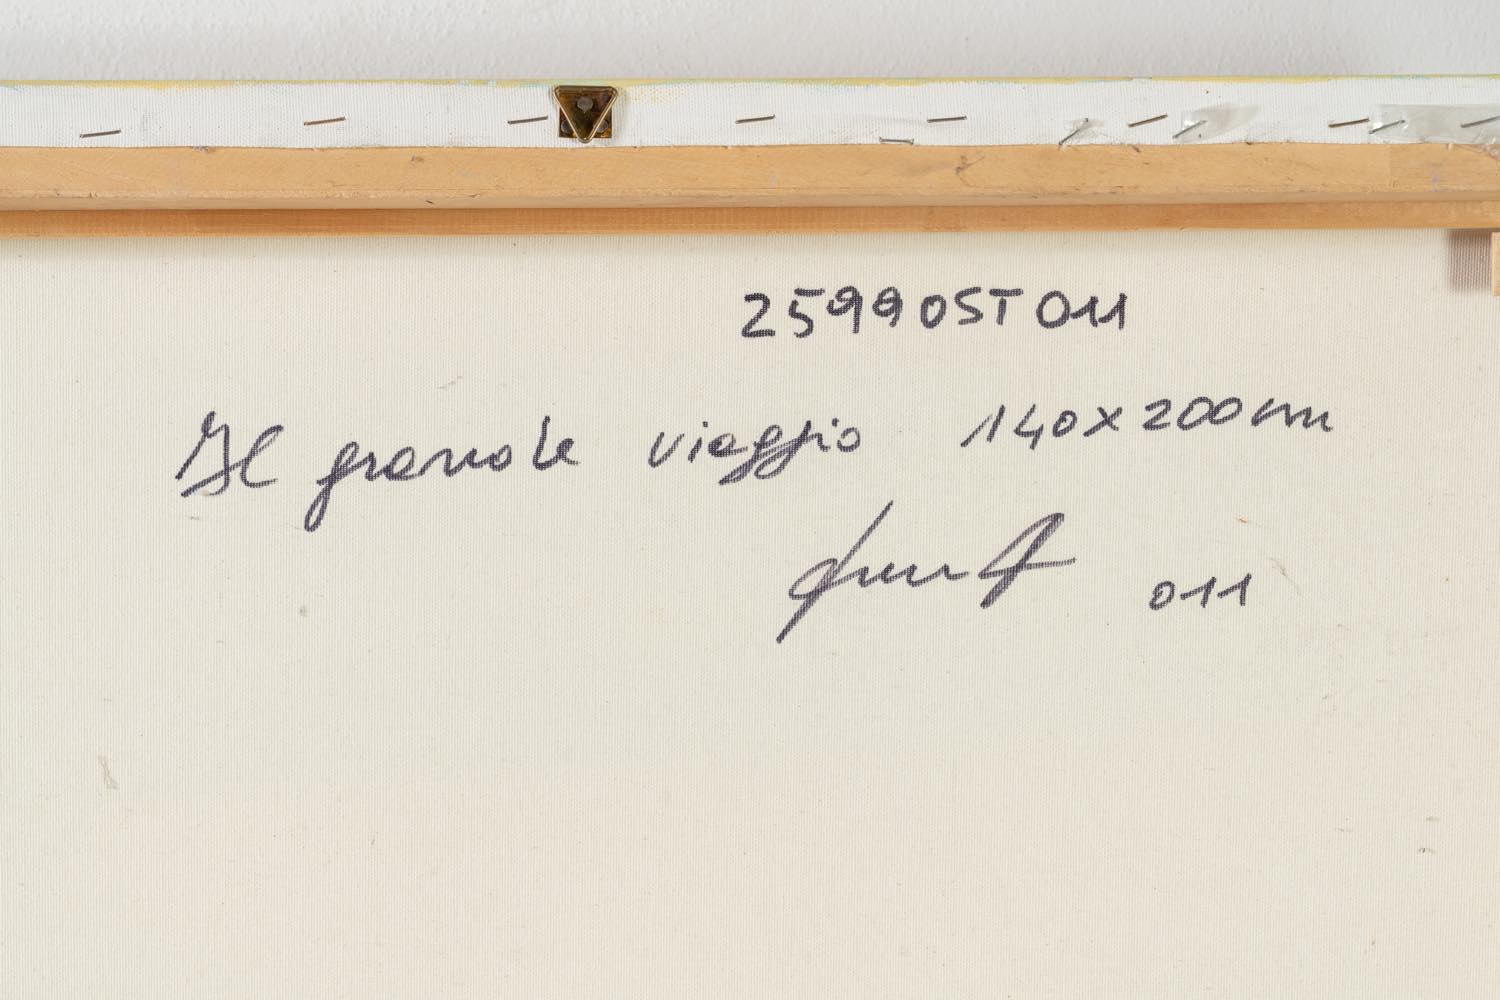 25990ST011
Il grande viaggio 140x200cm
011